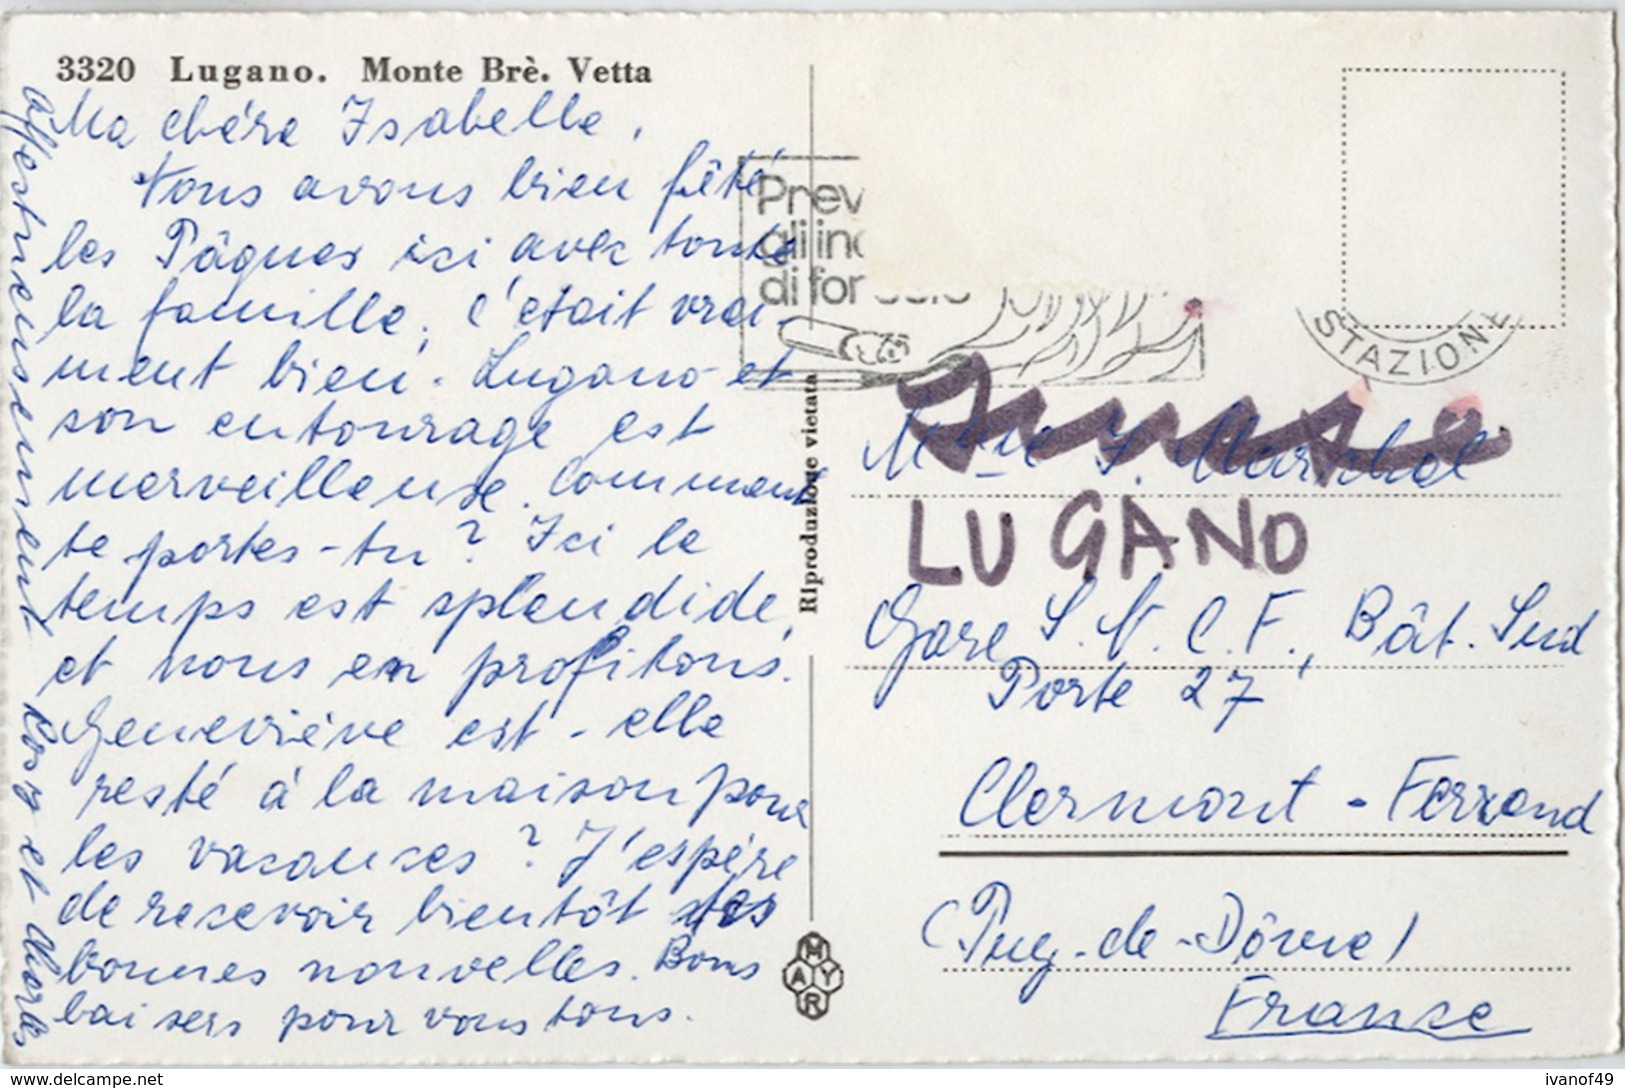 3320 Lugano. Monte Brè. Vetta
Ma chére Isabelle,
Nous avons bien fêté
les Pâques ici avec toute
la famille. C'était vrai-
ment bien. Lugano et
son entourage est
merveilleuse. Comment
te portes-tu? Ici le
temps est splendide,
et nous en profitons.
Geneviève est-elle
resté à la maison pour
les vacances? J'espère
de recevoir bientôt des
bonnes nouvelles. Bons
baisers pour vous tous.
affectueusement Rosy et Charles
Riproduzione vietata
MAYR
Prev
gli inc
di for
STAZIONE
Mme J. Maréchal
LUGANO
Gare S.N.C.F., Bât. Sud
Porte 27
Clermont-Ferrand
(Puy-de-Dôme)
France
www.delcampe.net
ivanof49